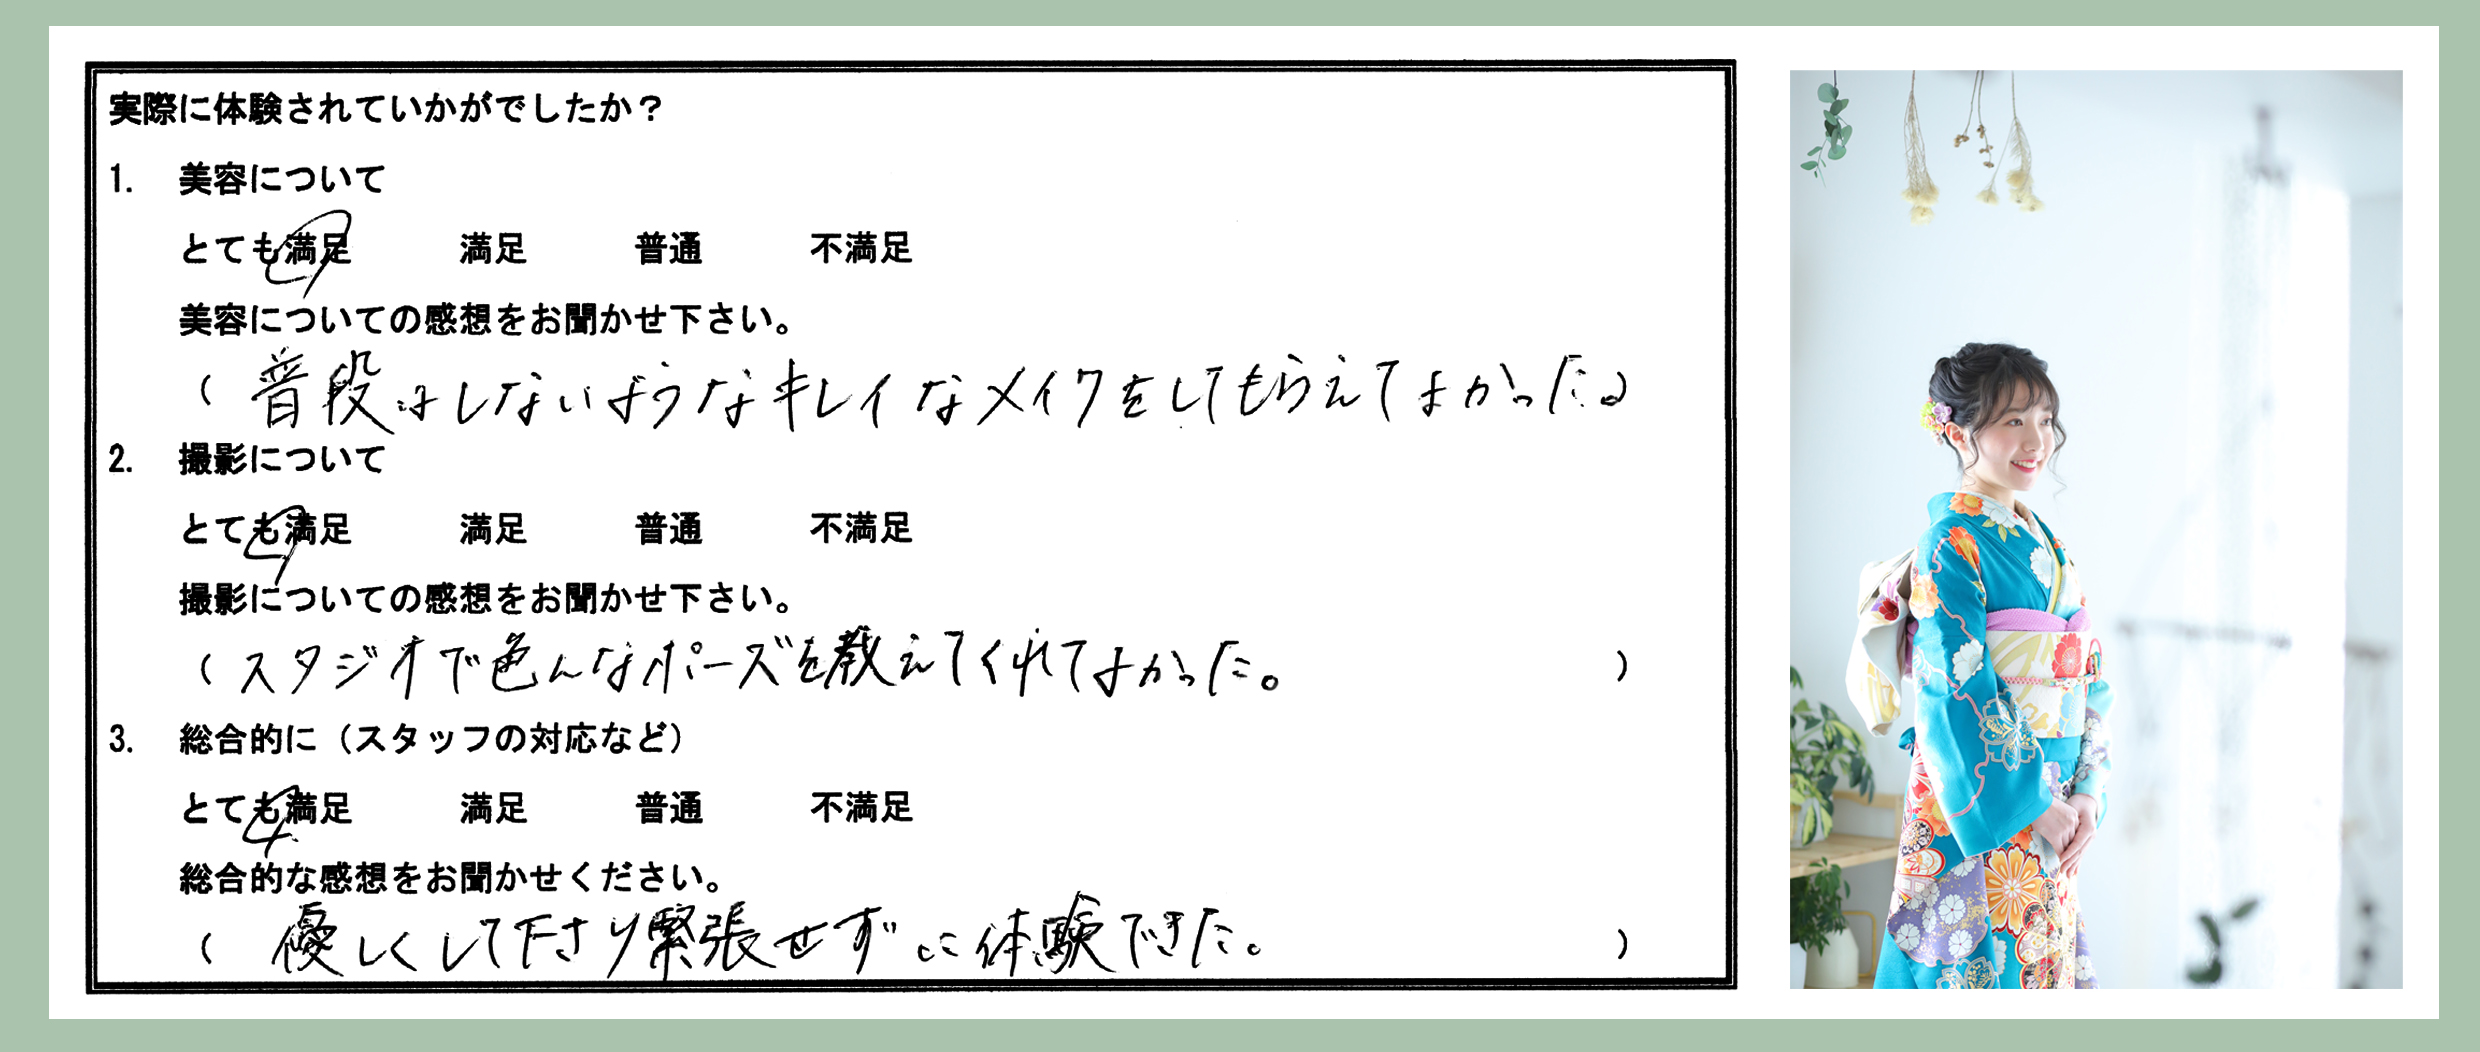 実際に体験されていかがでしたか？
1. 美容について
とても満足 満足 普通 不満足
美容についての感想をお聞かせ下さい。
（ 普段はしないようなキレイなメイクをしてもらえてよかった。）
2. 撮影について
とても満足 満足 普通 不満足
撮影についての感想をお聞かせ下さい。
（ スタジオで色んなポーズを教えてくれてよかった。 ）
3. 総合的に（スタッフの対応など）
とても満足 満足 普通 不満足
総合的な感想をお聞かせください。
（ 優しくして下さり緊張せずに体験できた。 ）